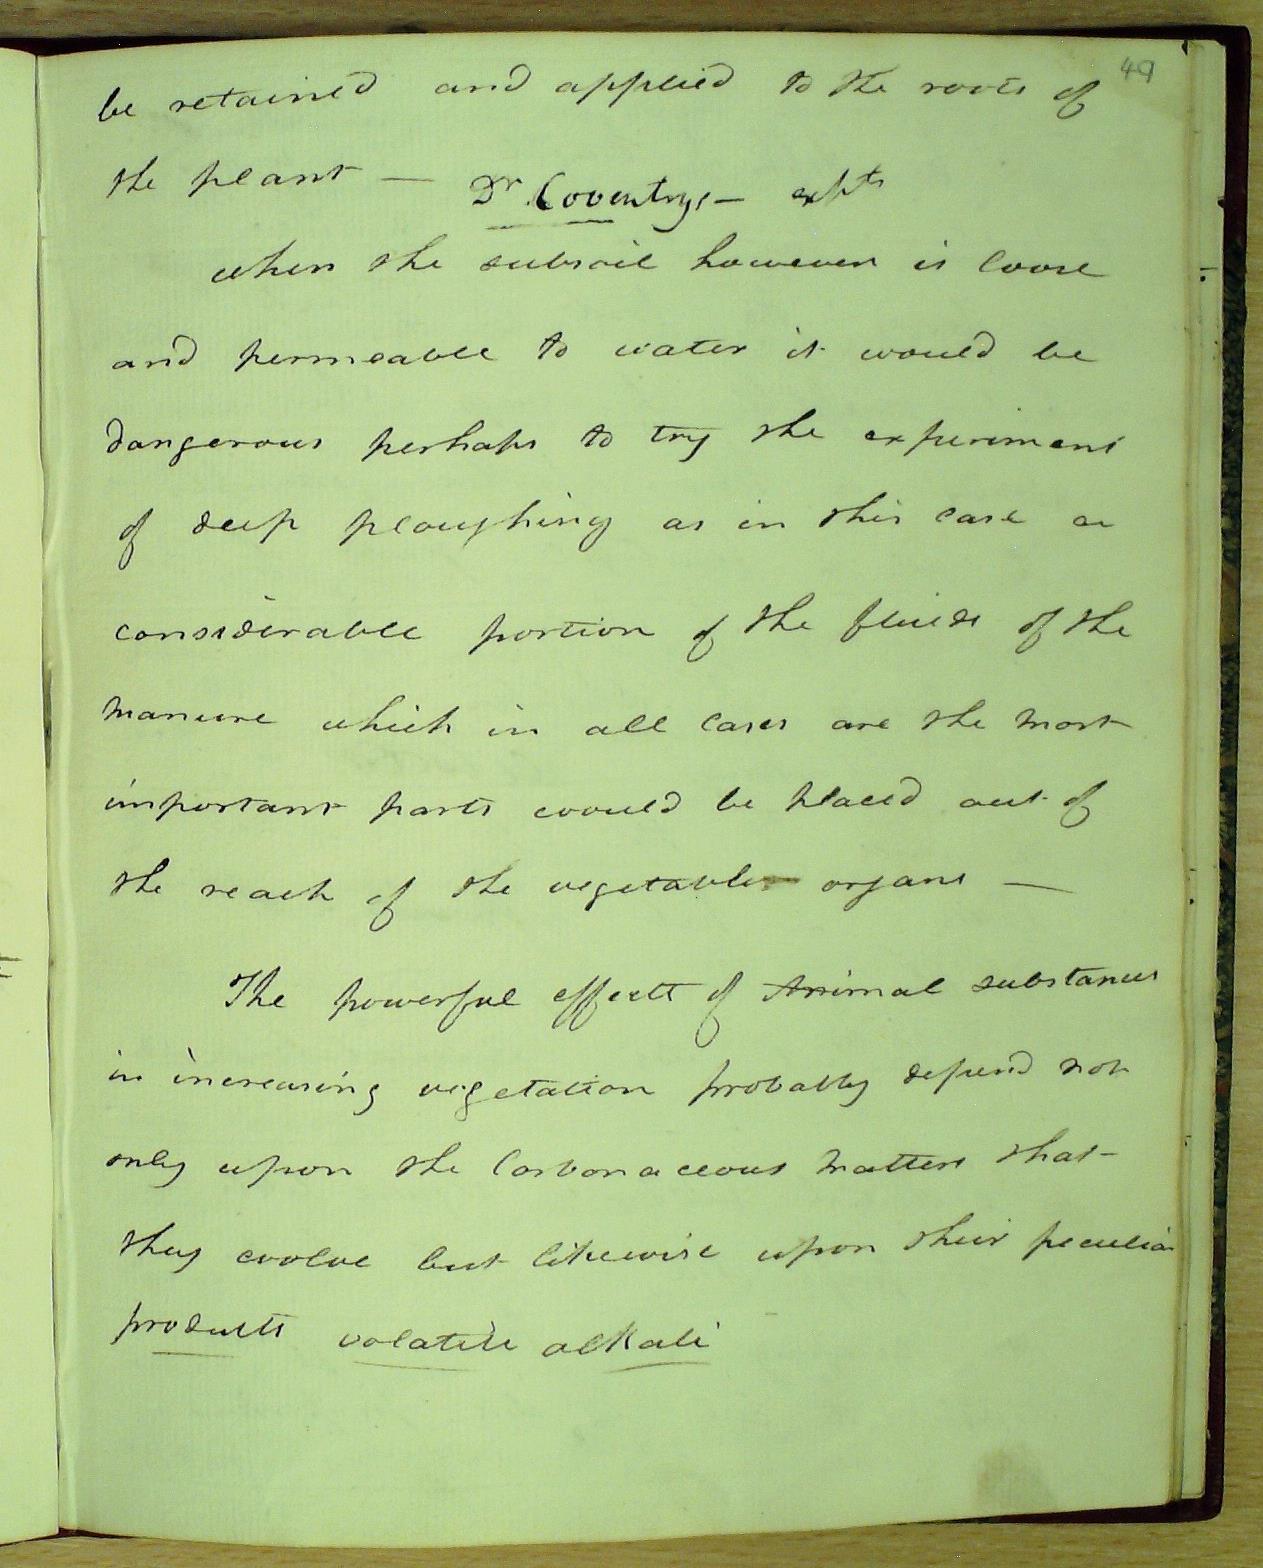 49
be retained and applied to the roots of
the plant — Dr. Coventrys — expts
when the subsoil however is loose
and permeable to water it would be
dangerous perhaps to try the experiment
of deep ploughing as in this case a
considerable portion of the fluids of the
manure which in all cases are the most
important parts would be placed out of
the reach of the vegetable organs —
The powerful effects of Animal substances
in increasing vegetation probably depend not
only upon the Carbonaceous matters that
they evolve but likewise upon their peculiar
products volatile alkali